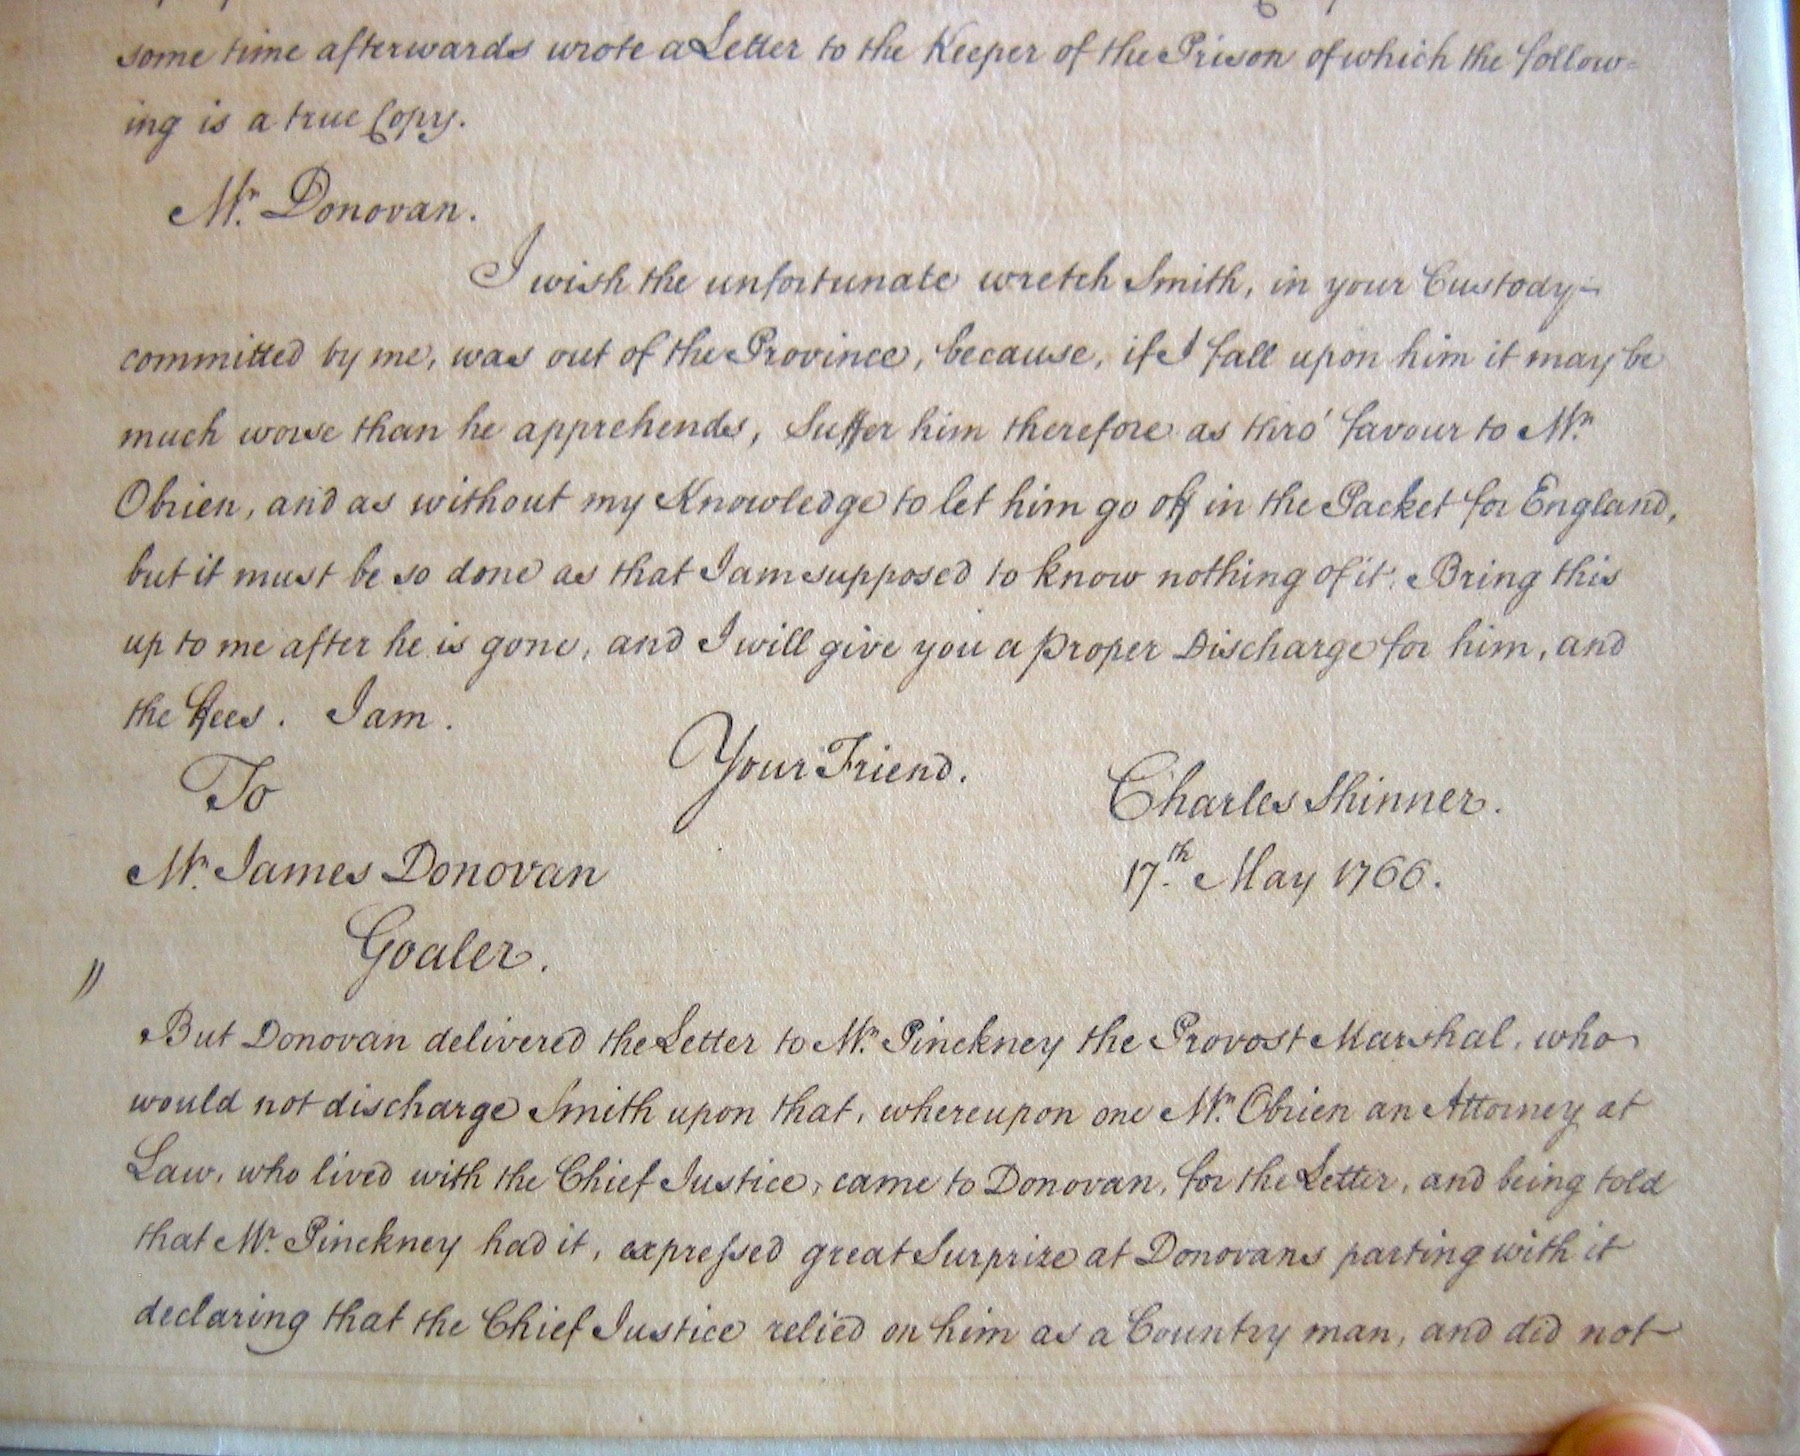 some time afterwards wrote a Letter to the Keeper of the Prison of which the follow=
ing is a true Copy.
Mr. Donovan.
I wish the unfortunate wretch Smith, in your Custody
committed by me, was out of the Province, because, if I fall upon him it may be
much worse than he apprehends, Suffer him therefore as thro' favour to Mr.
Obrien, and as without my Knowledge to let him go off in the Packet for England,
but it must be so done as that I am supposed to know nothing of it. Bring this
up to me after he is gone, and I will give you a proper Discharge for him, and
the ffees. I am.
Your Friend.
To
Charles Shinner.
Mr. James Donovan
17.th May 1766.
Goaler.
"
But Donovan delivered the Letter to Mr. Pinckney the Provost Marshal, who
would not discharge Smith upon that, whereupon one Mr. Obrien an Attorney at
Law, who lived with the Chief Justice, came to Donovan, for the Letter, and being told
that Mr. Pinckney had it, expressed great Surprize at Donovans parting with it
declaring that the Chief Justice relied on him as a Country man, and did not